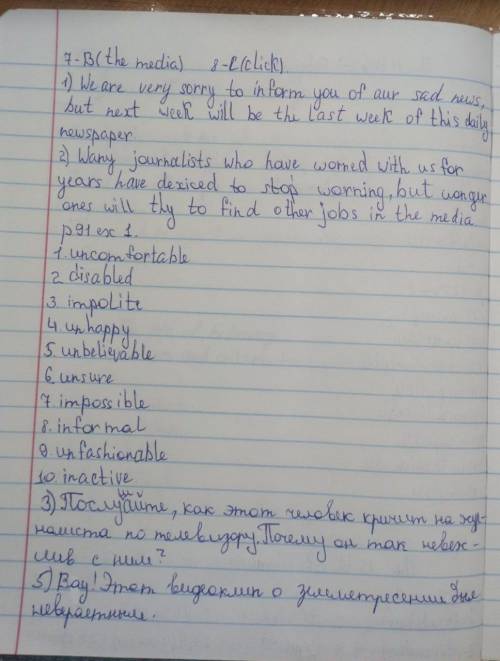 7-B(the media) 8-C(click)
1) We are very sorry to inform you of aur sad news,
but next week will be the last week of this daily
newspaper
2) Wany journalists who have worned with us for
years have dexiced to stop worning, but wonger
ones will thy to find other jobs in the media.
p91 ex 1.
1. uncomfortable
2 disabled
3. impolite
4. unhappy
5. unbelievable
6. unsure
7. impossible
8. informal
9. unfashionable
10. inactive
3) Послушайте, как этот человек кричит на жур-
налиста по телевизору. Почему он так невеж-
лив с ним?
5) Вау! Этот видеоклип о землетресении был
невераетным.